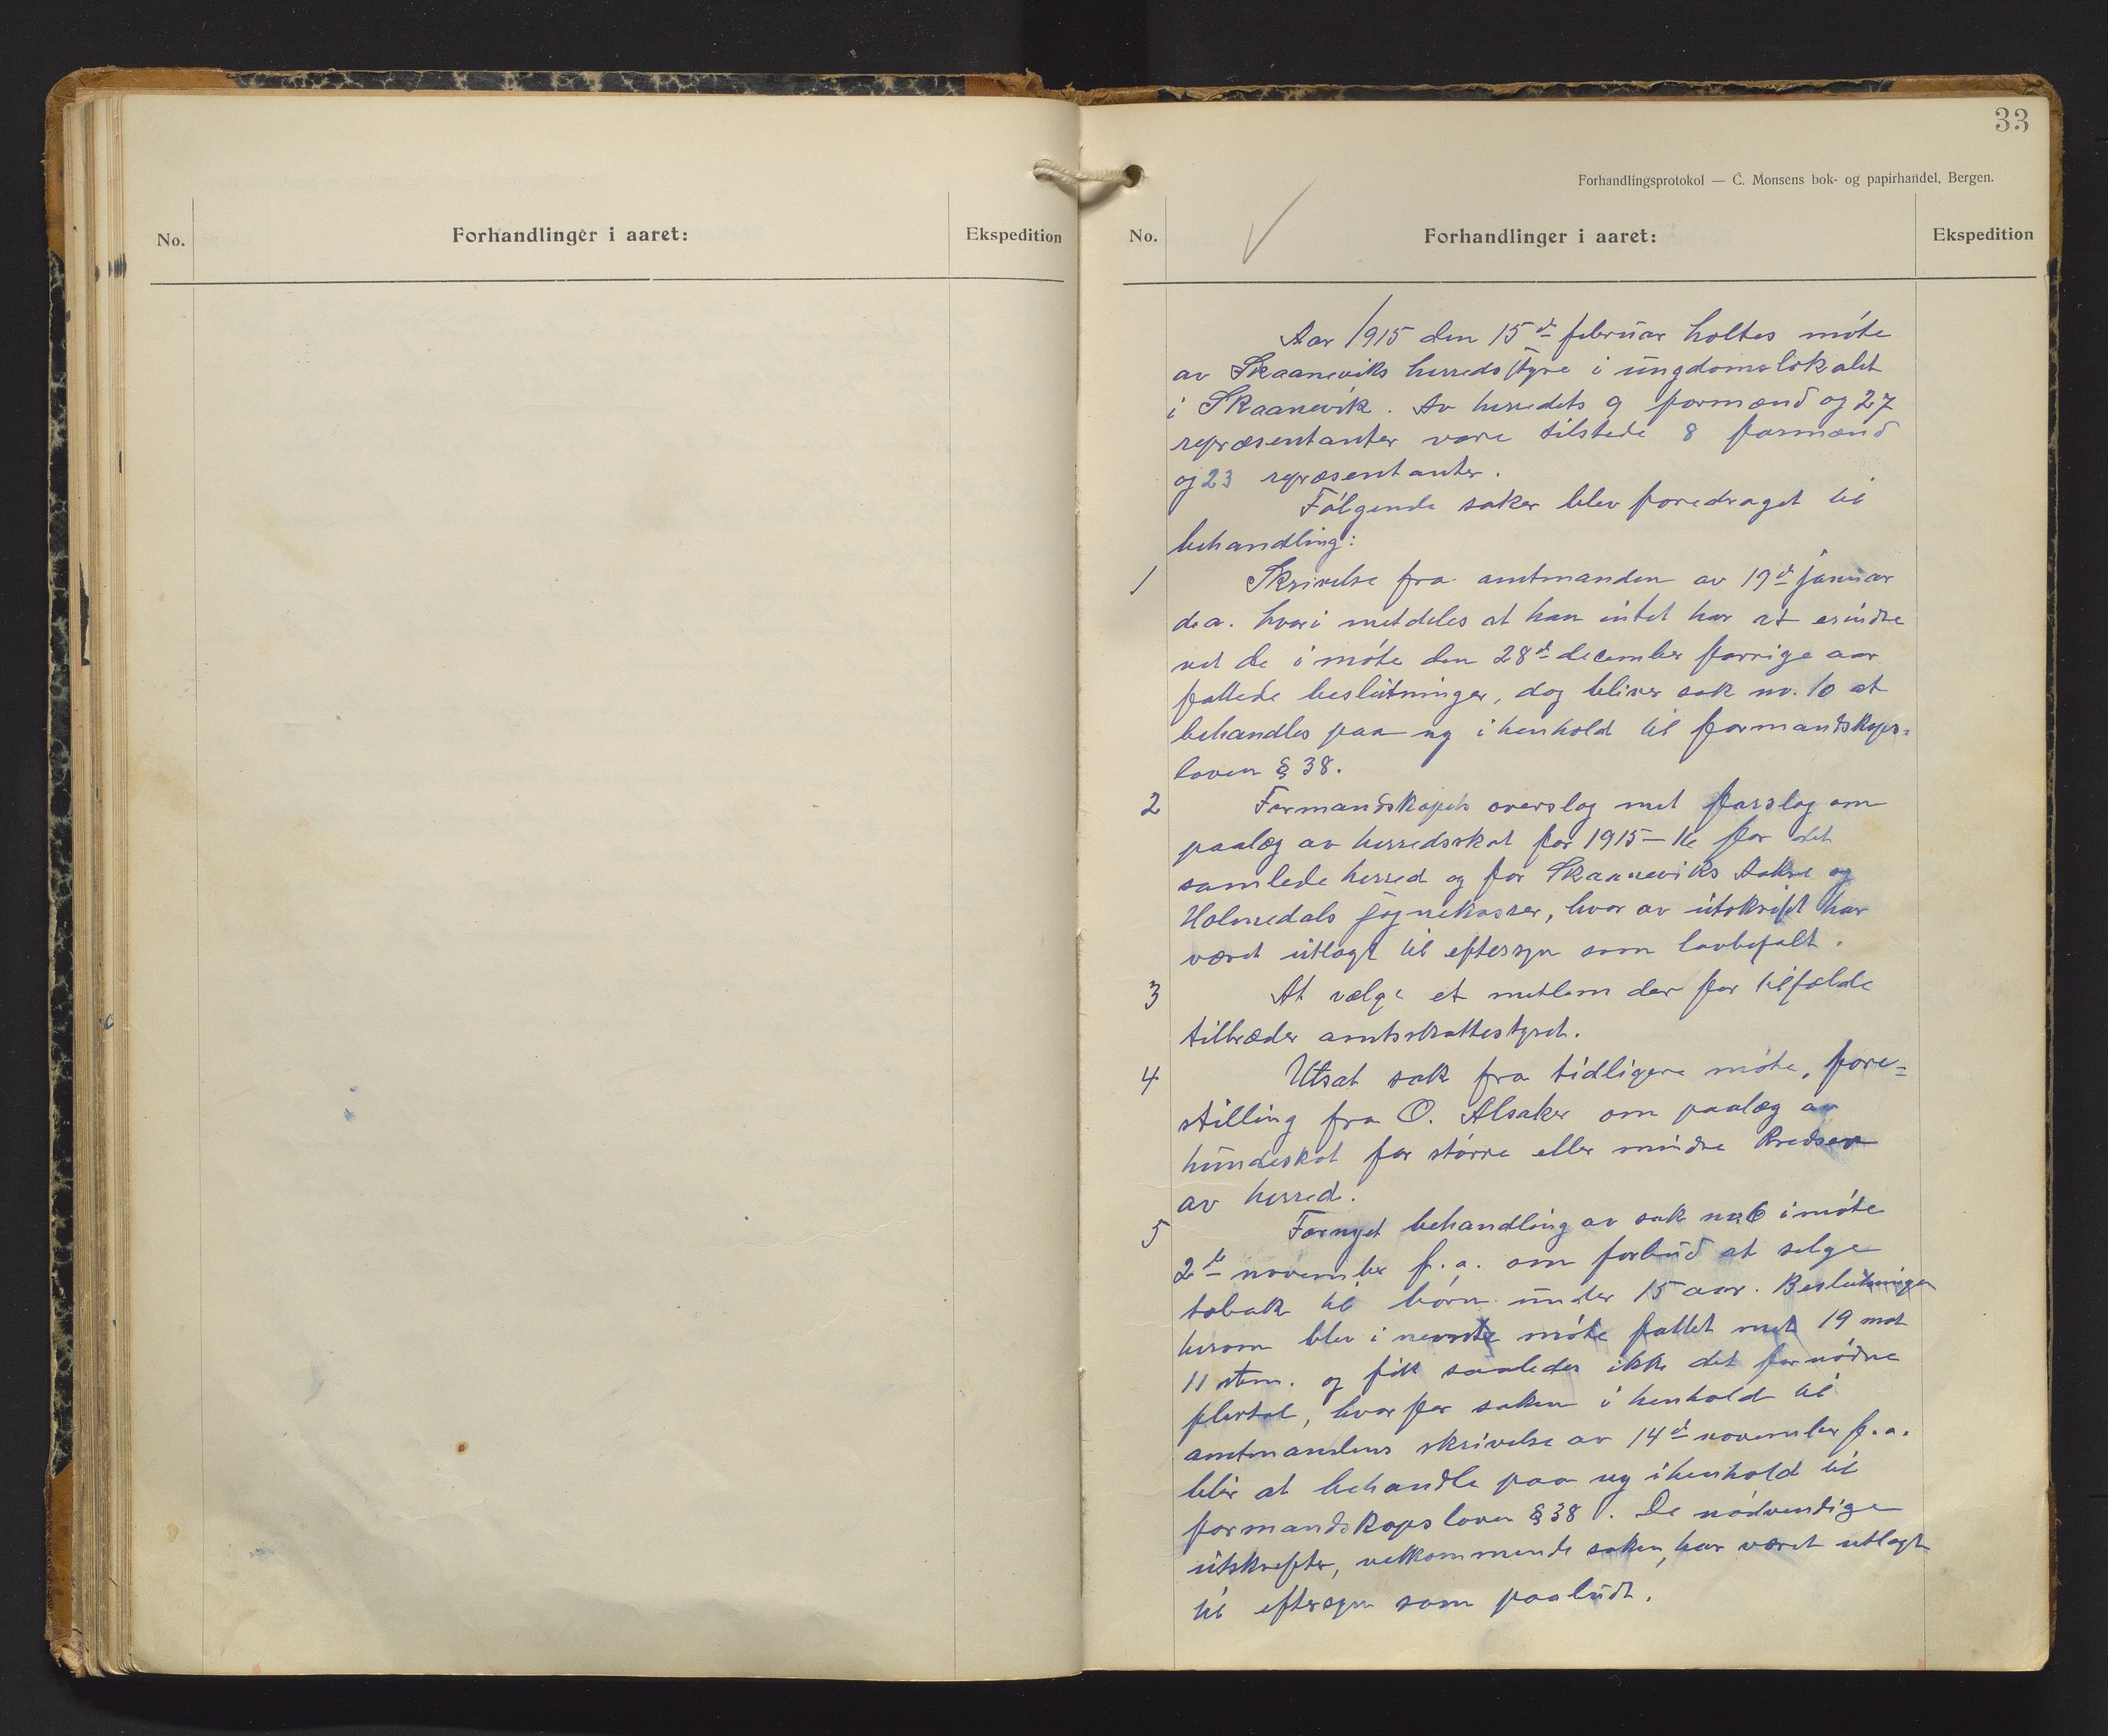 No.
Forhandlinger i aaret:
Ekspedition
33
Forhandlingsprotokol — C. Monsens bok- og papirhandel, Bergen.
No.
Forhandlinger i aaret:
Ekspedition
Aar 1915 den 15de februar holtes möte
av Skaaneviks herredsstyre i ungdomslokalet
i Skaanevik. Av herredets 9 formænd og 27
repræsentanter vare tilstede 8 formænd
og 23 repræsentanter.
Følgende saker blev foredraget til
behandling:
1 Skrivelse fra amtmanden av 19de januar
d.a. hvori metdeles at han intet har at erindre
vet de i möte den 28de december forrige aar
fattede beslutninger, dog bliver sak nr. 10 at
behandles paa ny i henhold til formandskaps-
loven § 38.
2 Formandskapets overslag met forslag om
paalæg av herredsskat for 1915-16 for det
samlede herred og for Skaaneviks Aakre og
Holmedals sognekasser, hvor av utskrift har
været utlagt til eftersyn som lovbefalt.
3 At vælge et metlem der for tilfælde
tiltræder amtsskattestyret.
4 Utsat sak fra tidligere möte, fore-
stilling fra O. Alsaker om paalæg av
hundeskat for större eller mindre kredser
av herred.
5 Fornyet behandling av sak nr. 6 i möte
2de november f.a. om forbud at selge
tobak til börn under 15 aar. Beslutningen
herom blev i nevnte möte fattet met 19 mot
11 stem. og fik saaledes ikke det fornödne
flertal, hvorfor saken i henhold til
amtmandens skrivelse av 14de november f.a.
blir at behandle paa ny i henhold til
formandskapsloven § 38. De nödvendige
utskrifter, vetkommende saken, har været utlagt
til eftersyn som paabudt.